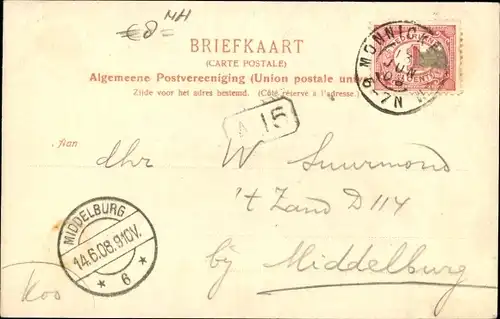 €8 NH
BRIEFKAART
(CARTE POSTALE)
Algemeene Postvereeniging (Union postale univ
Zijde voor het adres bestemd. (Côté réservé à l'adresse.)
MONNICKE
JUN
6-7N
A 15
Aan
dhr W Suurmond
't Zand D 114
bij Middelburg
MIDDELBURG
14.6.08.910V.
* 6 *
Koo